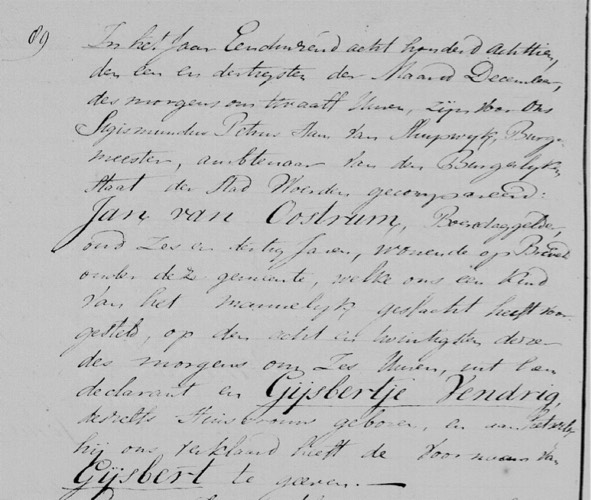 89
In het Jaar Eenduizend acht honderd Achttien,
den een en dertigsten der Maand December,
des morgens om twaalf Uuren, zijn voor Ons
Sigismundus Petrus van Burge
meester, ambtenaar van den Burgerlyken
Staat der Stad Woerden gecompareerd:
Jan van Oostrum, Bouwdaggelder,
oud Zes en dertig Jaren, wonende op
onder deze gemeente, welke ons een Kind
van het mannelyk geslacht heeft voor
gesteld, op den acht en twintigsten dezer
des morgens om Zes Uuren, uit den
declarant en Gijsbertje Vendrig,
deszelfs Huisvrouw geboren, en aan hetwelk
hij ons verklaard heeft de Voornaam van
Gijsbert te geeven.—